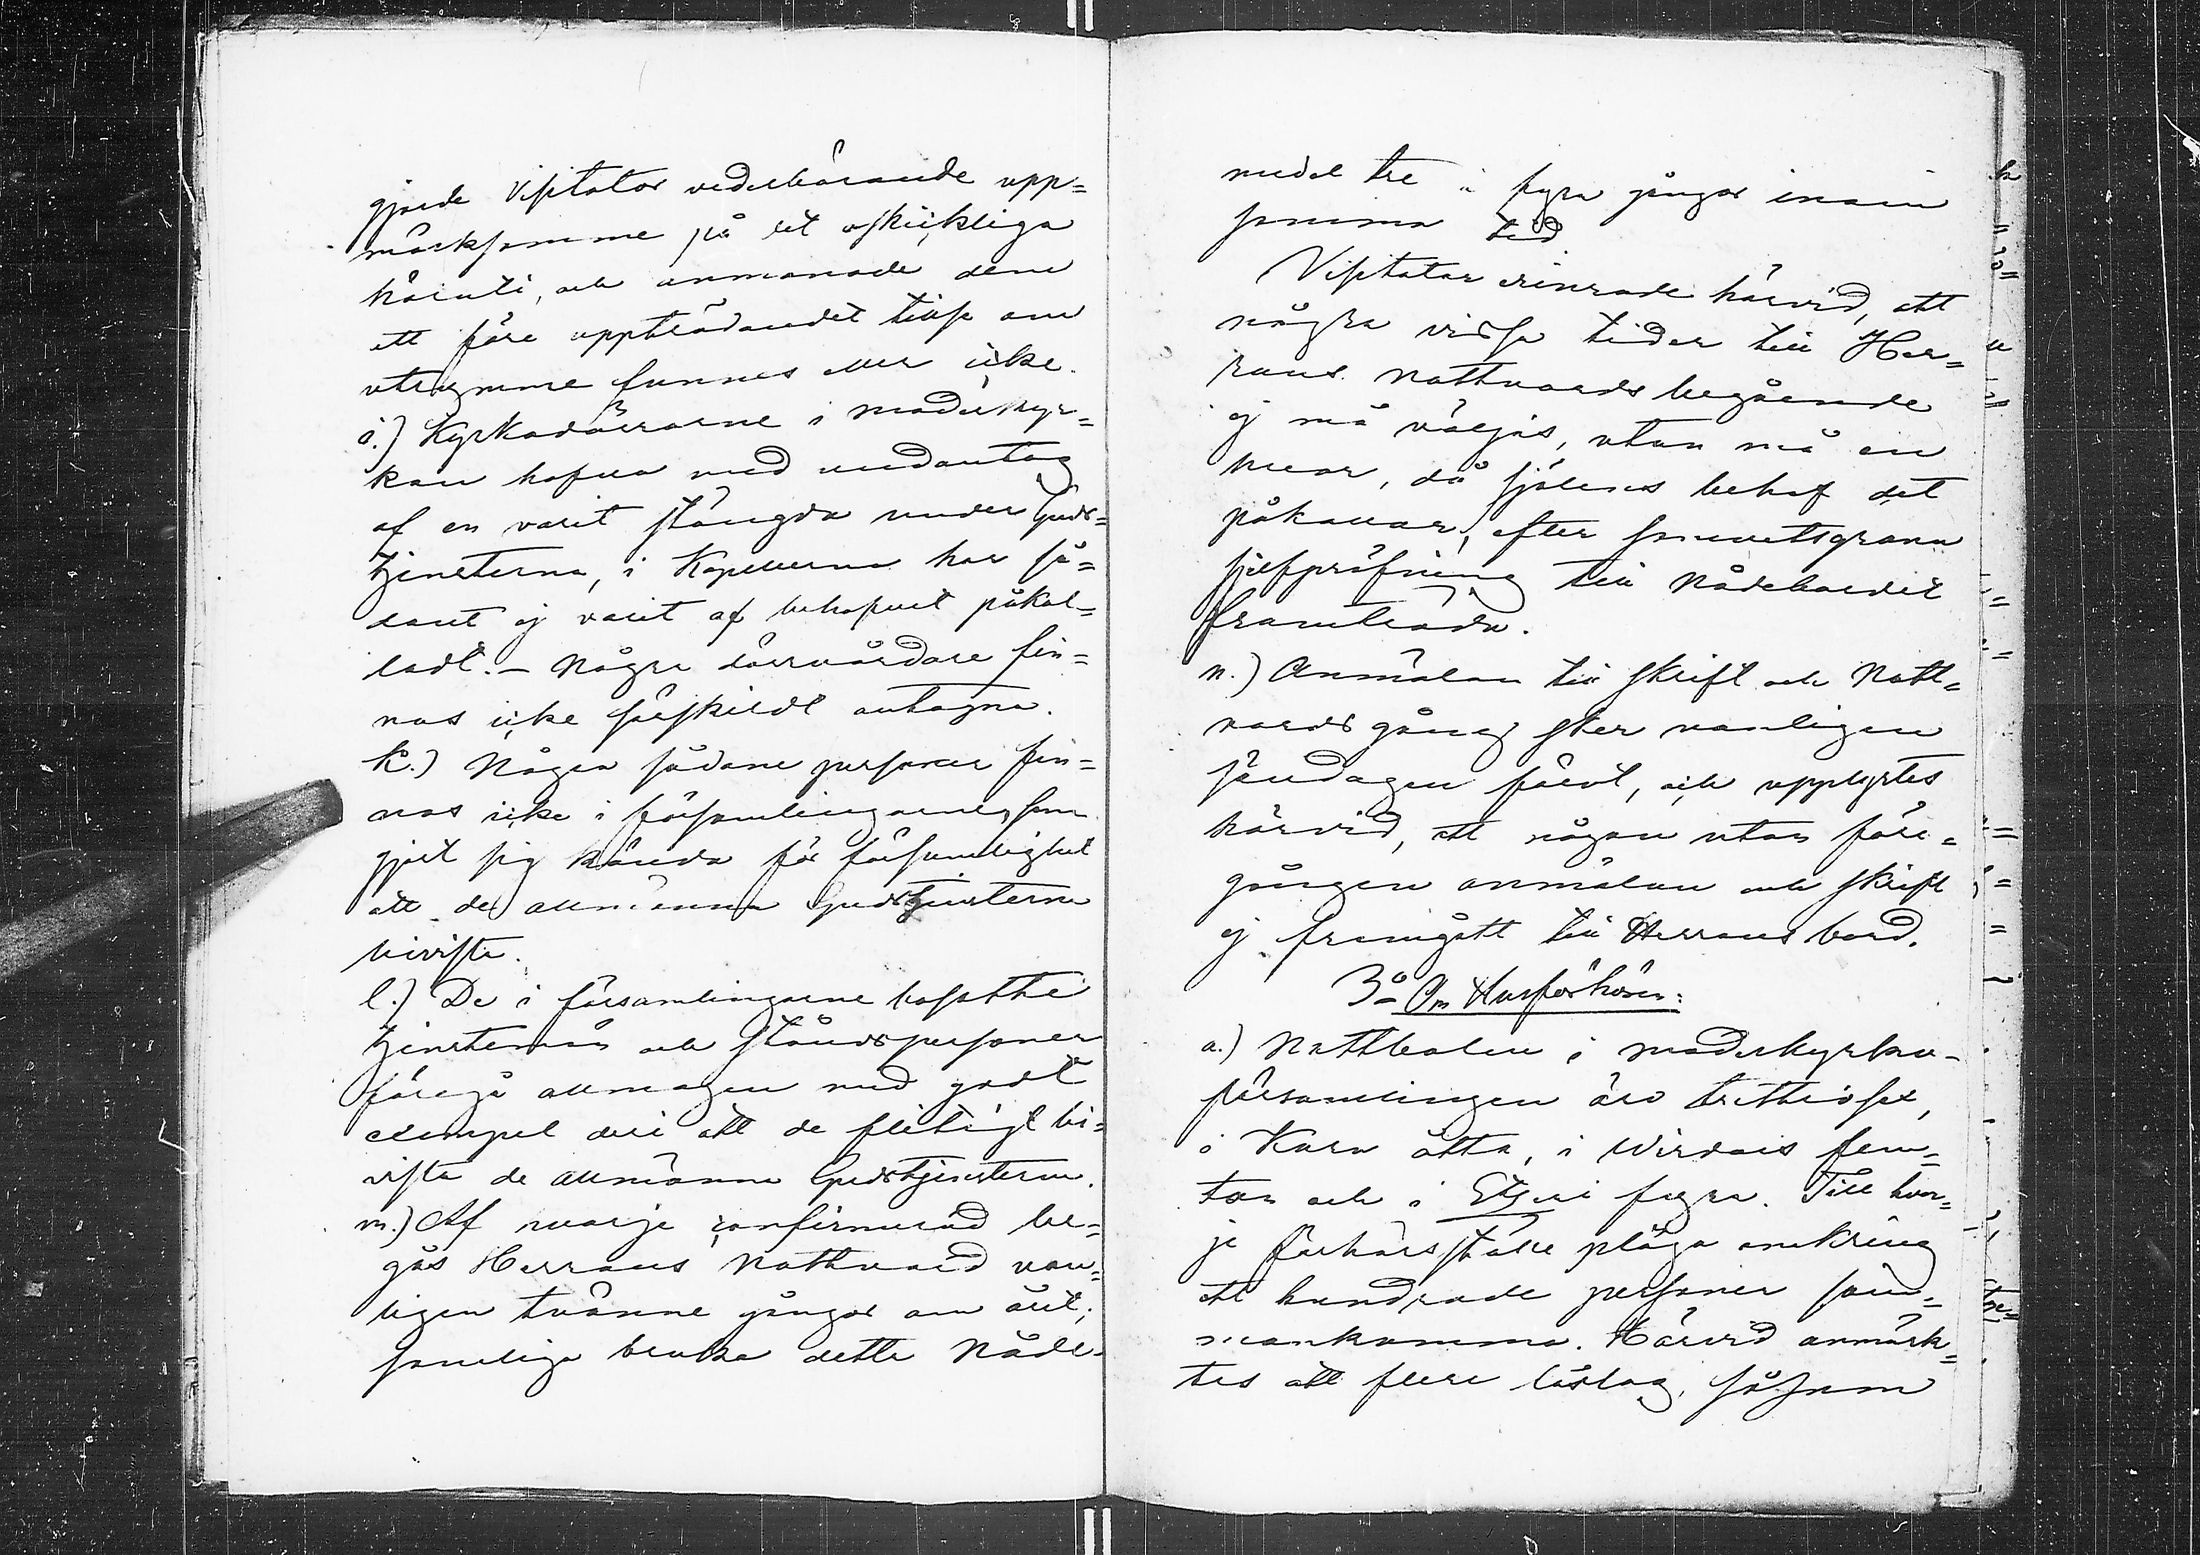 gjorde Visitator vederbörande upp=
märksamme på det oskickliga
häruti, och anmanade dem
att före uppträdandet tillse om
utrymme funnes eller icke.
i.) Kyrkodörrarne i moderkyr=
kan hafva med undantag
af en varit stängda under Guds=
tjensterna, i Kapellerna har så=
dant ej varit af behofvet påkal=
ladt. – Några dörrvårdare fin=
nas icke särskildt antagna.
k.) Några sådane personer fin=
nas icke i församlingarne, som
gjort sig kända för försumlighet
att de allmänna Gudstjensterna
bivista.
l.) De i församlingarne bosatte
tjenstemän och ståndspersoner
föregå allmogen med godt
exempel deri att de flitigt bi=
vista de allmänna Gudstjensterna.
m.) Af hvarje confirmerad be=
gås Herrans Nattvard van=
ligen tvänne gånger om året;
somliga bruka dette Nåde=
medel tre à fyra gånger inom
samma tid
Visitator erinrade härvid, att
några vissa tider till Her=
rans Nattvards begående
ej må väljas, utan må en
hvar, då själenes behof det
påkallar, efter samvetsgrann
sjelfpröfning till Nådebordet
framträda.
n.) Anmälan till skrift och Natt=
vardsgång sker vanligen
söndagen förut, och upplystes
härvid, att någon utan före=
gången anmälan och skrift
ej framgått till Herrans bord.
3º Om Husförhören:
a.) Rotthalen i moderkyrko-
församlingen äro trettiosex,
i Karu åtta, i Wirdois fem=
ton och i Etseri fyra. Till hvar=
je förhörsställe pläga omkring
ett hundrade personer sam=
mankomma. Härvid anmärk=
tes att flere läslag, såsom